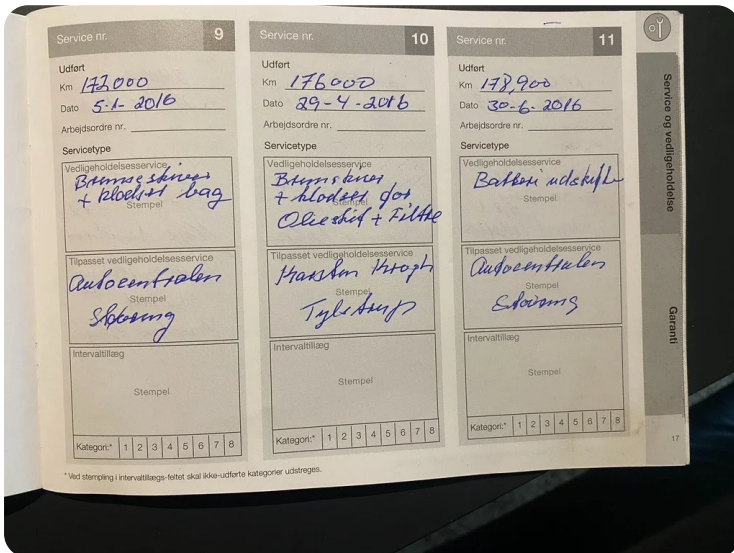 Service nr. 9
Udført
Km 172000
Dato 5-1-2016
Arbejdsordre nr.
Servicetype
Vedligeholdelsesservice
Bremseskiver
+ klodser bag
Stempel
Tilpasset vedligeholdelsesservice
Autocentralen
Stempel
Støvring
Intervaltillæg
Stempel
Kategori:* 1 2 3 4 5 6 7 8
Service nr. 10
Udført
Km 176000
Dato 29-4-2016
Arbejdsordre nr.
Servicetype
Vedligeholdelsesservice
Bremskiver
+ klodser for
Stempel
Olieskift + Filtre
Tilpasset vedligeholdelsesservice
Karsten Krogh
Stempel
Tylstrup
Intervaltillæg
Stempel
Kategori:* 1 2 3 4 5 6 7 8
Service nr. 11
Udført
Km 178,900
Dato 30-6-2016
Arbejdsordre nr.
Servicetype
Vedligeholdelsesservice
Batteri udskifte
Stempel
Tilpasset vedligeholdelsesservice
Autocentralen
Stempel
Støvring
Intervaltillæg
Stempel
Kategori:* 1 2 3 4 5 6 7 8
* Ved stempling i intervaltillægs-feltet skal ikke-udførte kategorier udstreges.
Service og vedligeholdelse
Garanti
17